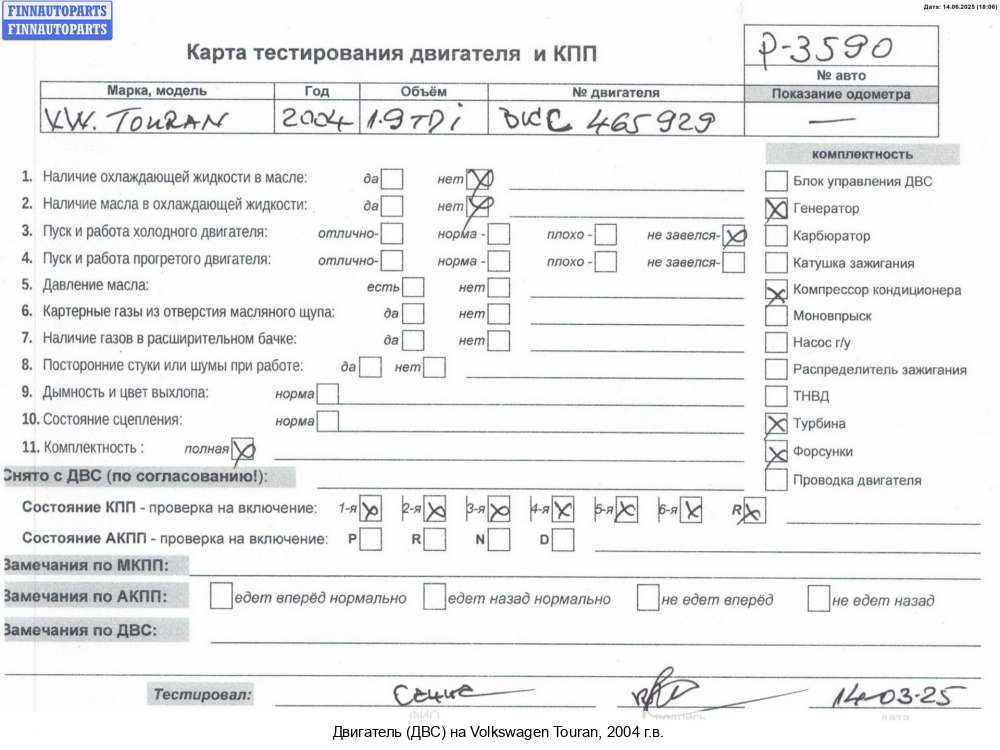 FINNAUTOPARTS
FINNAUTOPARTS
Дата: 14.06.2025 (18:06)
Карта тестирования двигателя и КПП
P-3590
№ авто
Марка, модель Год Объём № двигателя Показание одометра
VW. TOURAN 2004 1.9 TDi BKC 465929 —
комплектность
1. Наличие охлаждающей жидкости в масле: да нет
Блок управления ДВС
2. Наличие масла в охлаждающей жидкости: да нет
Генератор
3. Пуск и работа холодного двигателя: отлично- норма - плохо - не завелся-
Карбюратор
4. Пуск и работа прогретого двигателя: отлично- норма - плохо - не завелся-
Катушка зажигания
5. Давление масла: есть нет
Компрессор кондиционера
6. Картерные газы из отверстия масляного щупа: да нет
Моновпрыск
7. Наличие газов в расширительном бачке: да нет
Насос г/у
8. Посторонние стуки или шумы при работе: да нет
Распределитель зажигания
9. Дымность и цвет выхлопа: норма
ТНВД
10. Состояние сцепления: норма
Турбина
11. Комплектность : полная
Форсунки
Снято с ДВС (по согласованию!):
Проводка двигателя
Состояние КПП - проверка на включение: 1-я 2-я 3-я 4-я 5-я 6-я R
Состояние АКПП - проверка на включение: P R N D
Замечания по МКПП:
Замечания по АКПП: едет вперёд нормально едет назад нормально не едет вперёд не едет назад
Замечания по ДВС:
Тестировал: 14-03-25
ФИО подпись дата
Двигатель (ДВС) на Volkswagen Touran, 2004 г.в.